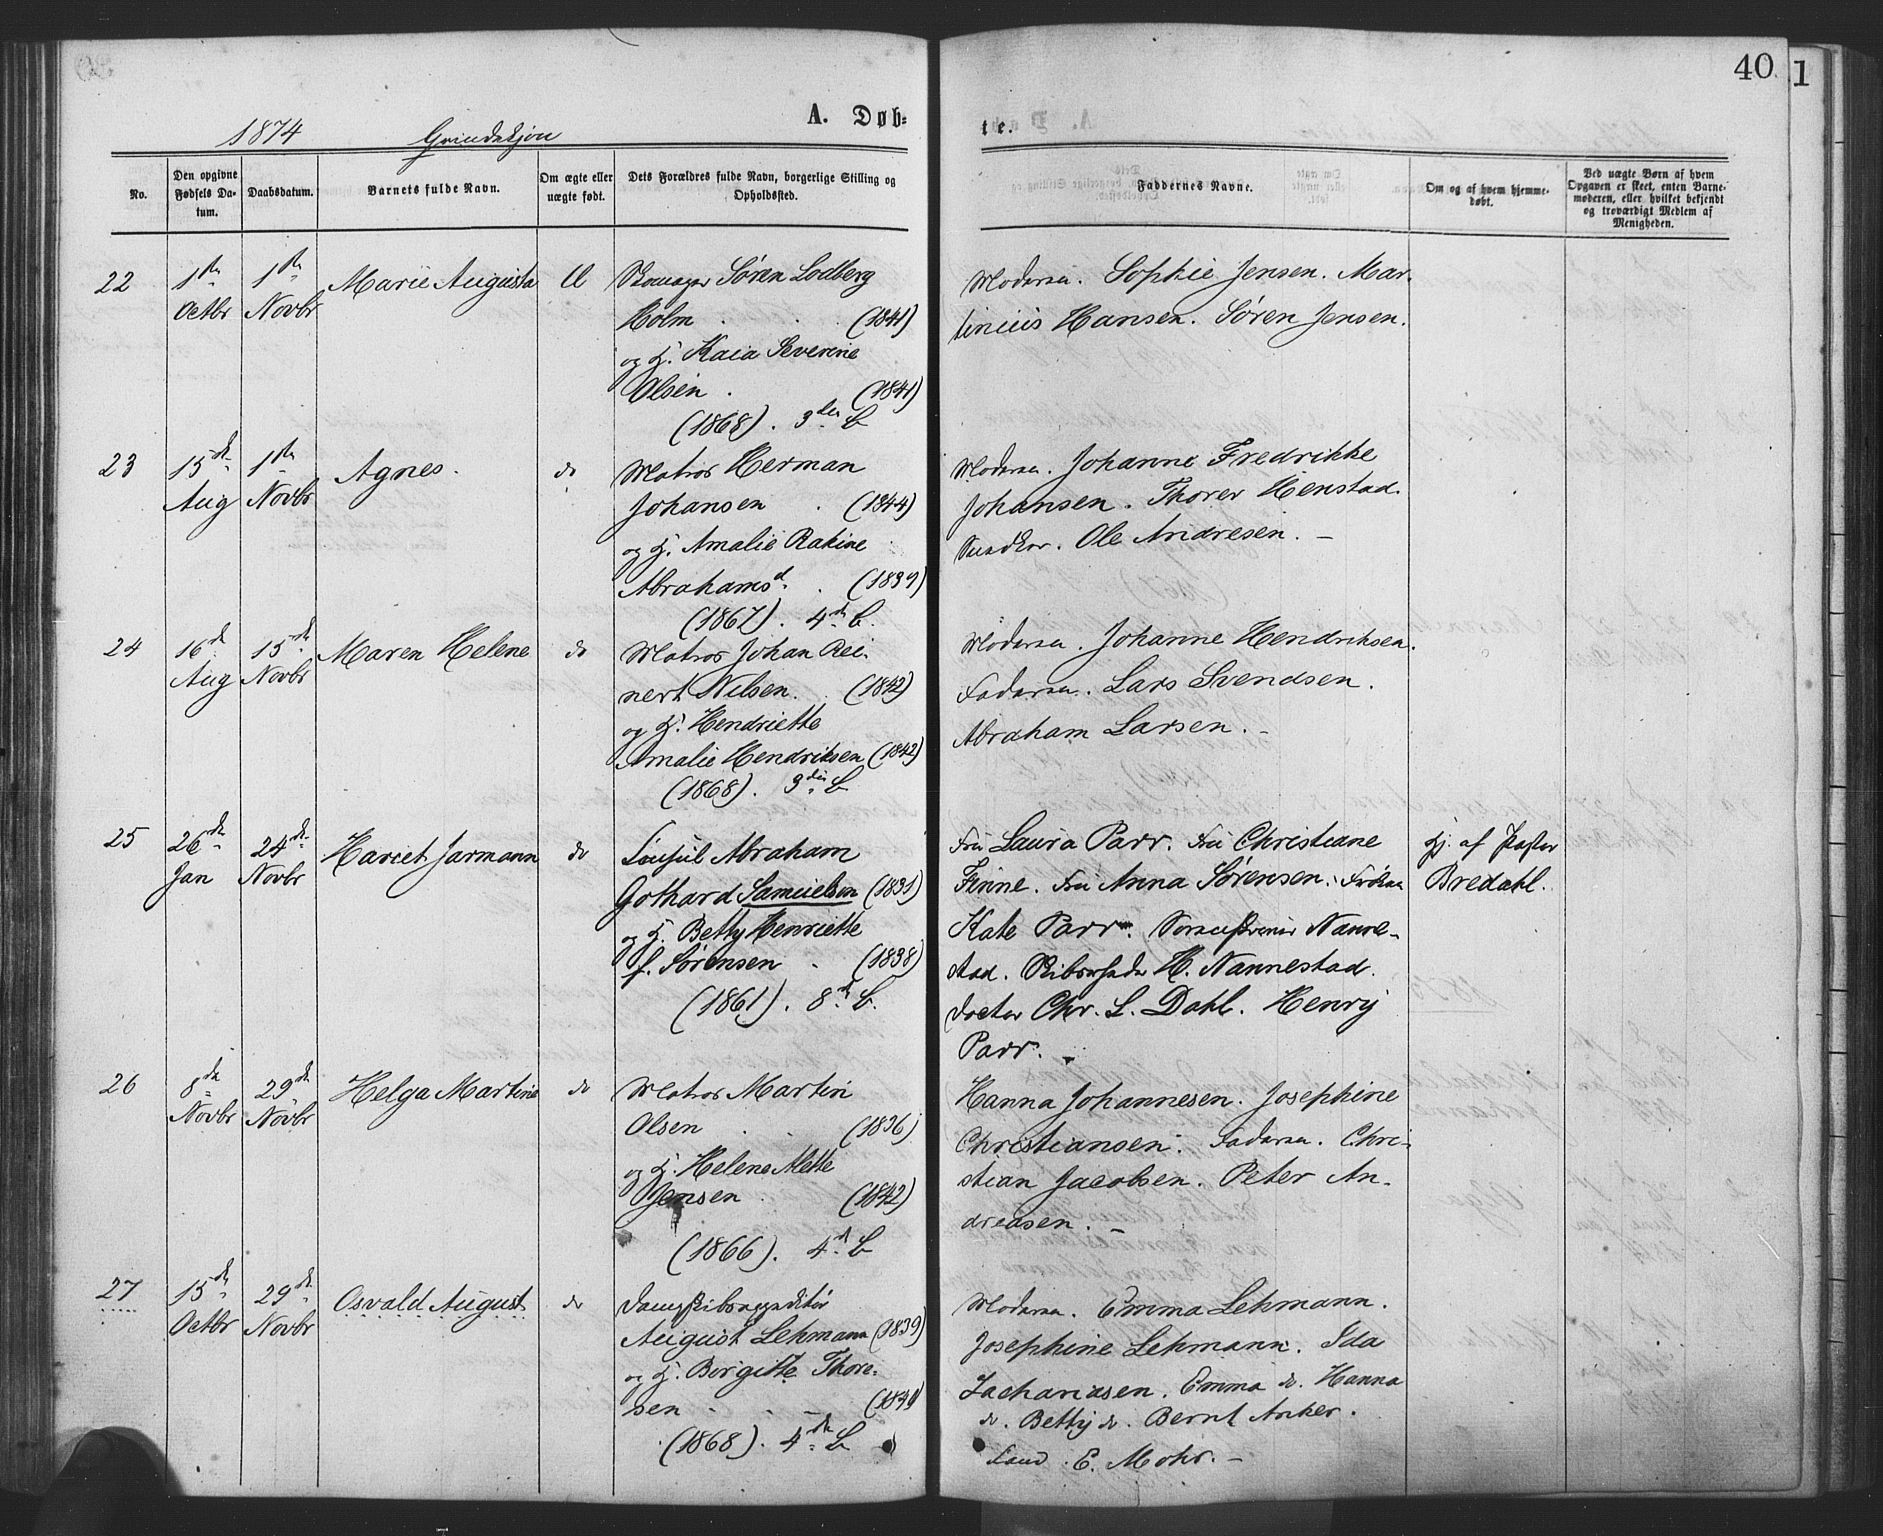 40
1
1874 Grindskjøn
A. Døb-
te.
No.
Den opgivne Fødsels Da-tum.
Daabsdatum.
Barnets fulde Navn.
Om ægte eller uægte født.
Dets Forældres fulde Navn, borgerlige Stilling og Opholdssted.
Faddernes Navne.
Om og af hvem hjemme-døbt.
Ved uægte Børn af hvem Opgaven er skeet, enten Barne-moderen, eller hvilket bekjendt og troværdigt Medlem af Menigheden.
22 1ste 1ste Marie Augusta Skomager Søren Lodberg
Octbr Novbr Holm . (1841)
og H. Kaia Severine
Olsen . (1841)
(1868). 3die B
Moderen. Sophie Jensen. Mar-
tinius Hansen. Søren Jensen.
23 15de 1ste Agnes. do Matros Herman
Aug Novbr Johansen . (1844)
og H. Amalie Rakine
Abrahamsd. . (1839)
(1867). 4de B.
Moderen. Johanne Fredrikke
Johansen. Thorer Henstad.
Snedker. Ole Andresen. –
24 16de 15de Maren Helene do Matros Johan Rei-
Aug Novbr nert Nilsen. . (1842)
og H. Hendriette
Amalie Hendriksen (1842)
(1868). 3die B
Moderen. Johanne Hendriksen.
Faderen. Lars Svendsen.
Abraham Larsen. –
25 26de 24de Hariet Jarmann do Consul Abraham
Jan Novbr Gothard Samuelsen (1831)
og H. Betty Henriette
f. Sørensen . (1838)
(1861). 8de B.
Fru Laura Parr. Fru Christiane
Finne. Fru Anna Sørensen. Frøken
Kate Parr. Nanne-
stad. H. Nannestad.
Doctor Chr. L. Dahl. Henry
Parr. –
Hj. af Pastor
Bredahl.
26 8de 29de Helga Martine do Matros Martin
Novbr Novbr Olsen . . (1836)
og H. Helene Mette
Jensen . (1842)
(1866). 4de B
Hanna Johannesen. Josephine
Christiansen. Faderen. Chri-
stian Jacobsen. Peter An-
dreasen. –
27 15de 29de Osvald August do Dampskibsexpeditør
Octbr Novbr August Lehmann (1839)
og H. Borgitte Thore-
sen . . –
(1868). 4de B
Moderen. Emma Lehmann.
Josephine Lehmann. Ida
Zachariasen. Emma do. Hanna
do. Betty do. Bernt Anker.
E. Mohr. –